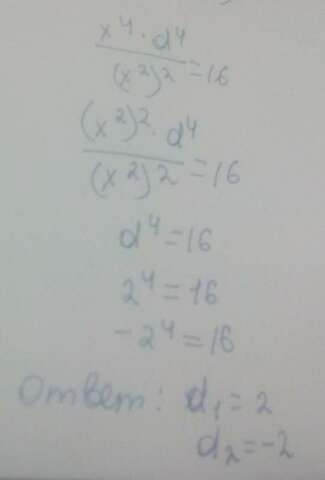 x⁴ · d⁴ / (x²)² = 16
(x²)² · d⁴ / (x²)² = 16
d⁴ = 16
2⁴ = 16
-2⁴ = 16
Ответ: d₁ = 2
d₂ = -2